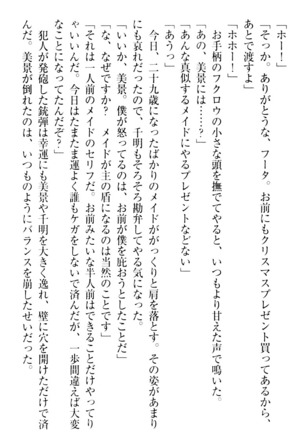 「ホー！」
「そっか。ありがとうな、フータ。お前にもクリスマスプレゼント買ってあるから、
あとで渡すよ」
「ホホー！」
お手柄のフクロウの小さな頭を撫でてやると、いつもより甘えた声で鳴いた。
「あの、美景には……？」
「あんな真似するメイドにやるプレゼントなどない」
「あうっ」
今日、二十九歳になったばかりのメイドががっくりと肩を落とす。その姿があまり
にも哀れだったので、千明もそろそろ勘弁してやる気になった。
「いいか、美景。僕が怒ってるのは、お前が僕を庇おうとしたことだ」
「な、なぜですか？　メイドが主の盾になるのは当然のことです」
「それは一人前のメイドのセリフだ。お前みたいな半人前はできることだけやってり
ゃいいんだ。今日はたまたま運よく誰もケガをしないで済んだが、一歩間違えば大変
なことになってたんだぞ？」
犯人が発砲した銃弾は幸運にも美景や千明を大きく逸れ、壁に穴を開けただけで済
んだ。美景が倒れたのは、いつものようにバランスを崩したせいだった。